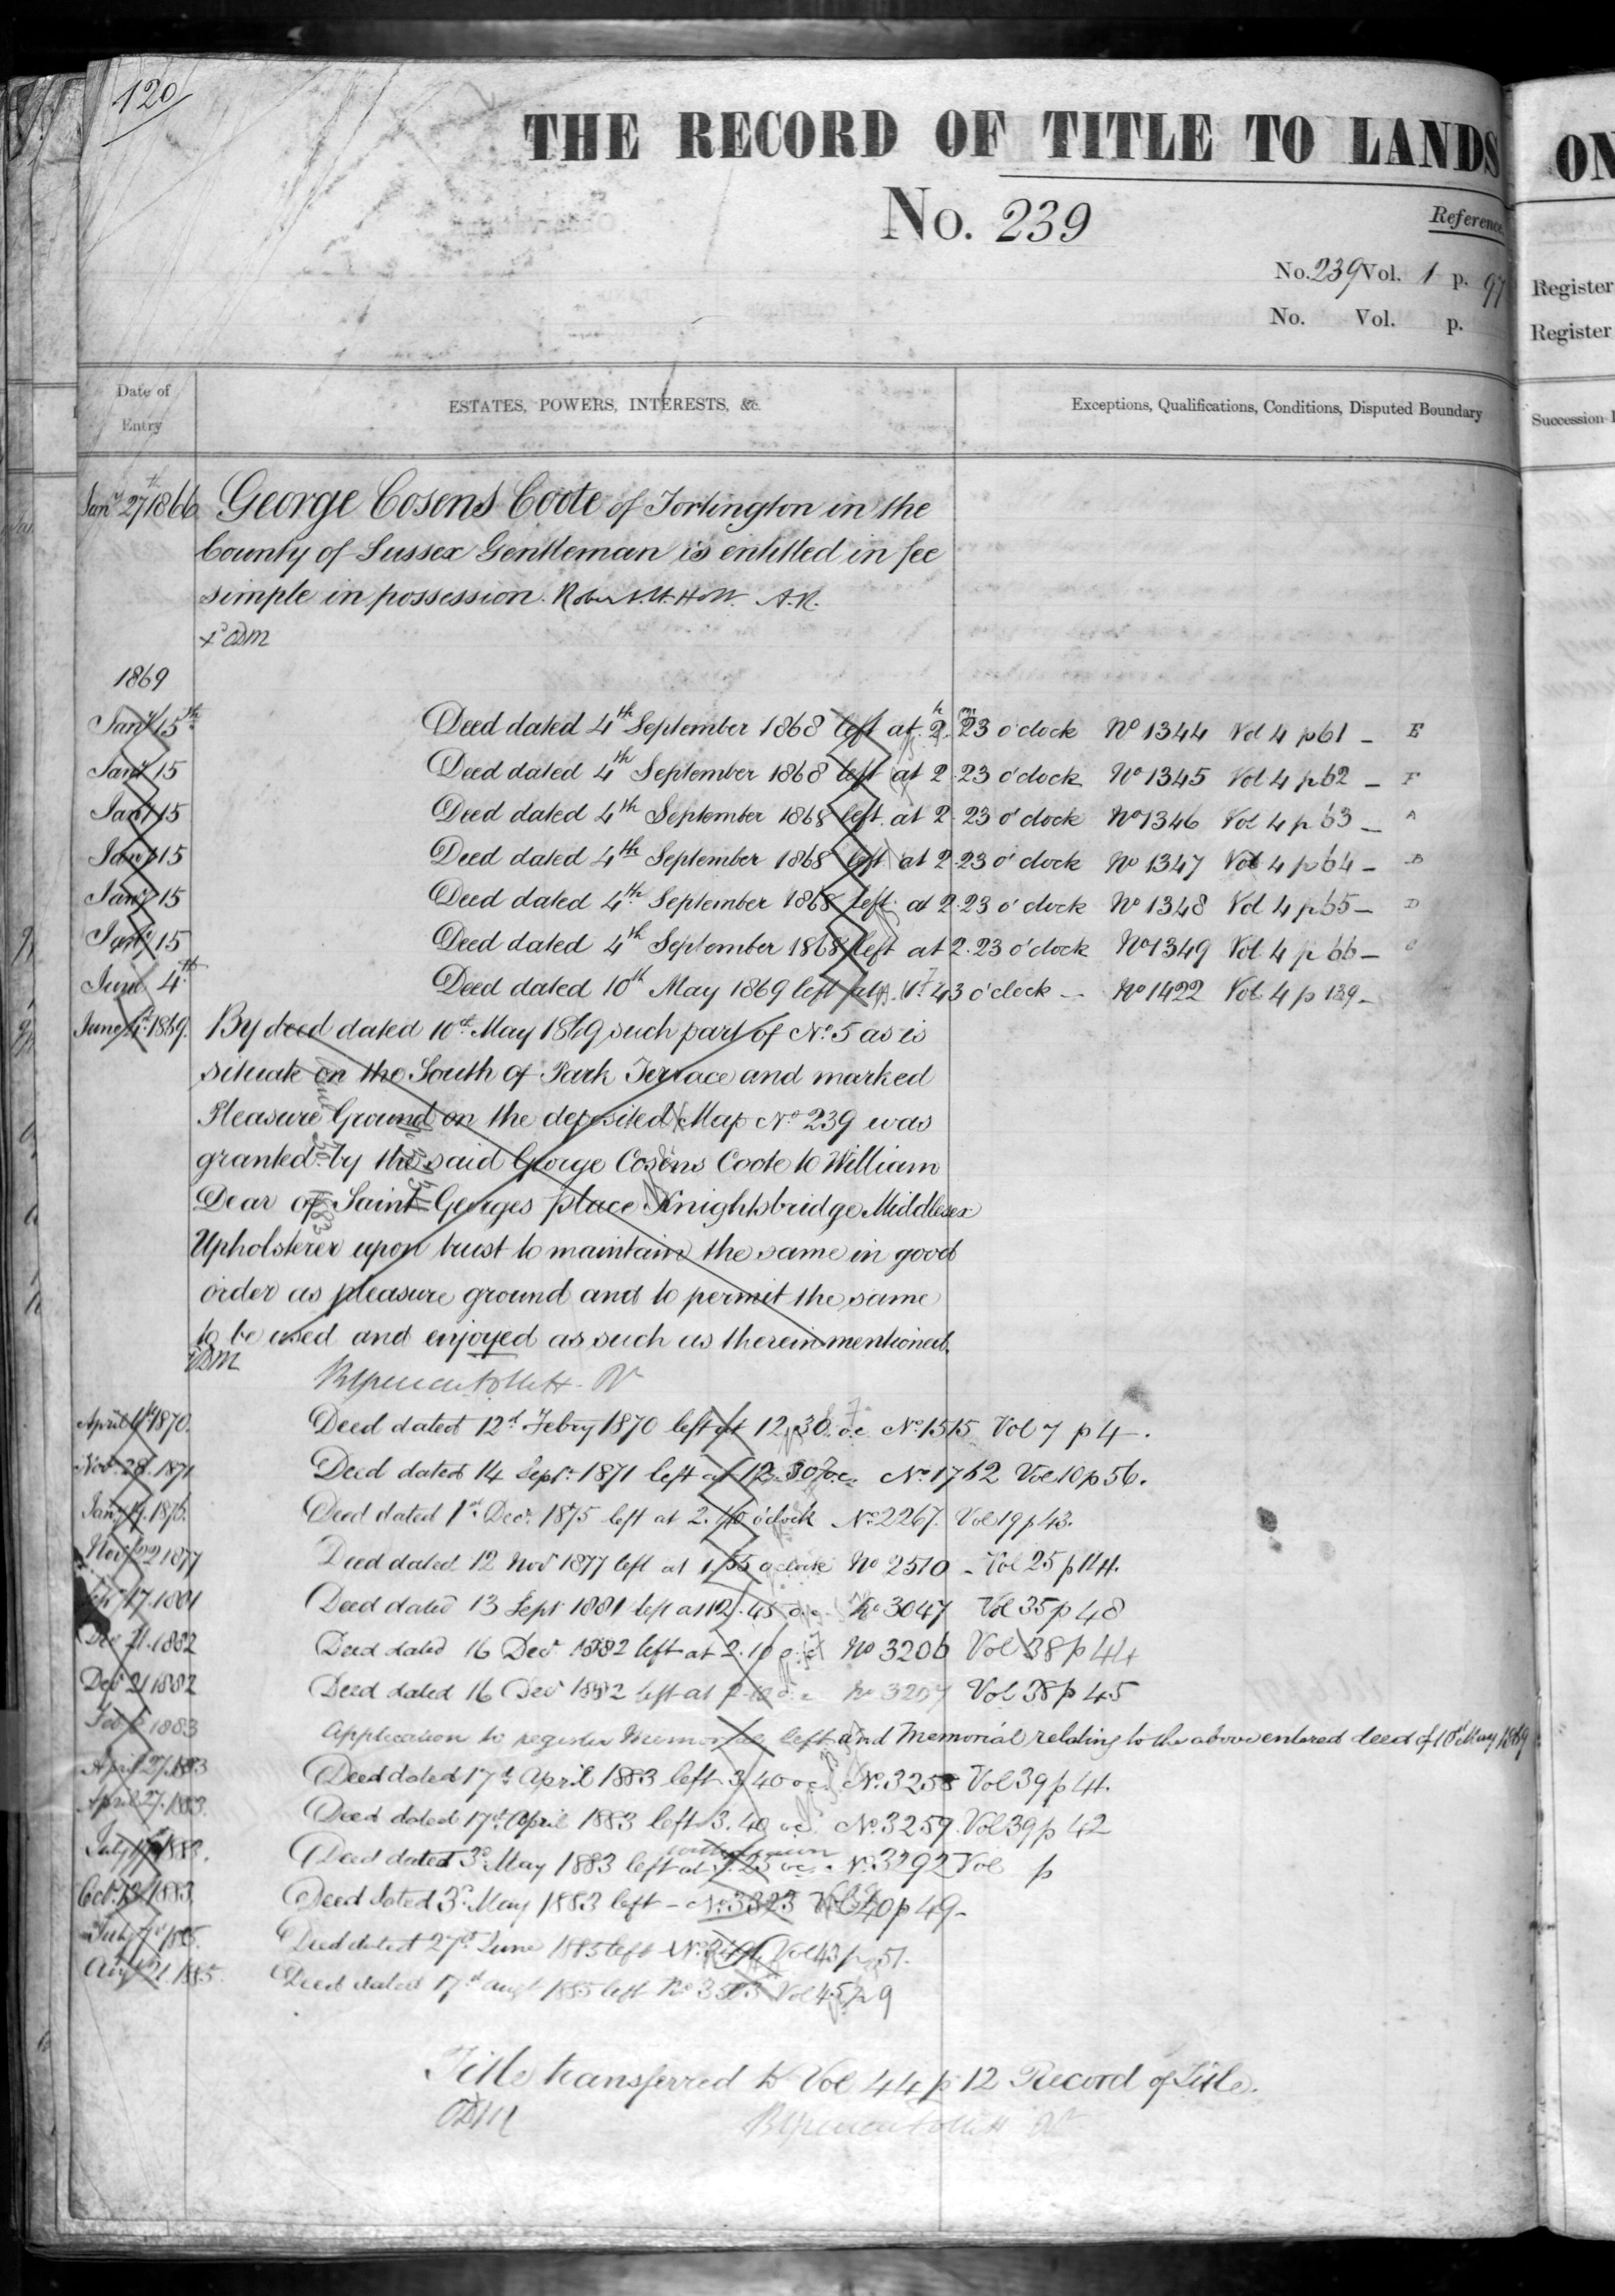 120
THE RECORD OF TITLE TO LANDS
ON
No. 239
Reference
No. 239 Vol. 1 p. 97
Register
No. Vol. p.
Register
Date of Entry
ESTATES, POWERS, INTERESTS, &c.
Exceptions, Qualifications, Conditions, Disputed Boundary
Succession
Jany 27th 1866 George Cosens Coote of Tortington in the
County of Sussex Gentleman is entitled in fee
simple in possession. A.R.
1869
Jany 15th Deed dated 4th September 1868 left at 2h 23m o'clock No 1344 Vol 4 p 61 - E
Jany 15 Deed dated 4th September 1868 left at 2.23 o'clock No 1345 Vol 4 p 62 - F
Jany 15 Deed dated 4th September 1868 left at 2.23 o'clock No 1346 Vol 4 p 63 - A
Jany 15 Deed dated 4th September 1868 left at 2.23 o'clock No 1347 Vol 4 p 64 - B
Jany 15 Deed dated 4th September 1868 left at 2.23 o'clock No 1348 Vol 4 p 65 - D
Jany 15 Deed dated 4th September 1868 left at 2.23 o'clock No 1349 Vol 4 p 66 - C
June 4th Deed dated 10th May 1869 left at 1.43 o'clock - No 1422 Vol 4 p 139 -
June 4th 1869. By deed dated 10th May 1869 such part of No. 5 as is
situate on the South of Park Terrace and marked
Pleasure Ground on the deposited Map No 239 was
granted by the said George Cosens Coote to William
Dear of Saint Georges place Knightsbridge Middlesex
Upholsterer upon trust to maintain the same in good
order as pleasure ground and to permit the same
to be used and enjoyed as such as therein mentioned.
April 4th 1870. Deed dated 12th Febry 1870 left at 12.30 o.c. No. 1515 Vol 7 p 4.
Nov. 28. 1871 Deed dated 14 Sept. 1871 left at 12.30 o.c. No. 1762 Vol 10 p 56.
Jany 19. 1876. Deed dated 1st Decr. 1875 left at 2.40 o'clock No. 2267. Vol 19 p 43.
Novr 22 1877 Deed dated 12 Novr 1877 left at 1.55 o'clock No 2510 - Vol 25 p 114.
17. 1881 Deed dated 13 Sept 1881 left at 12.45 o.c. No 3047 Vol 35 p 48
Dec 21. 1882 Deed dated 16 Decr 1882 left at 2.10 o.c No 3206 Vol 38 p 44
Decr 21 1882 Deed dated 16 Decr 1882 left at 2.10 o.c No 3207 Vol 38 p 45
Feb 1883 Application to register Memorial left and Memorial relating to the above entered deed of 10th May 1869
April 27. 1883 Deed dated 17th April 1883 left 3.40 o.c. No. 3258 Vol 39 p 41.
April 27. 1883. Deed dated 17th April 1883 left 3.40 o.c. No. 3259. Vol 39 p 42
withdrawn
July 1883. Deed dated 3d May 1883 left at 1.25 o.c. No. 3292 Vol p
Oct. 1883. Deed dated 3d May 1883 left - No. 3323 Vol 40 p 49 -
July 7th 1885. Deed dated 27th June 1885 left No. Vol 43 p 51.
Augt 21. 1885. Deed dated 17th augt 1885 left No 3503 Vol 45 p 9
Title transferred to Vol 44 p 12 Record of Title.